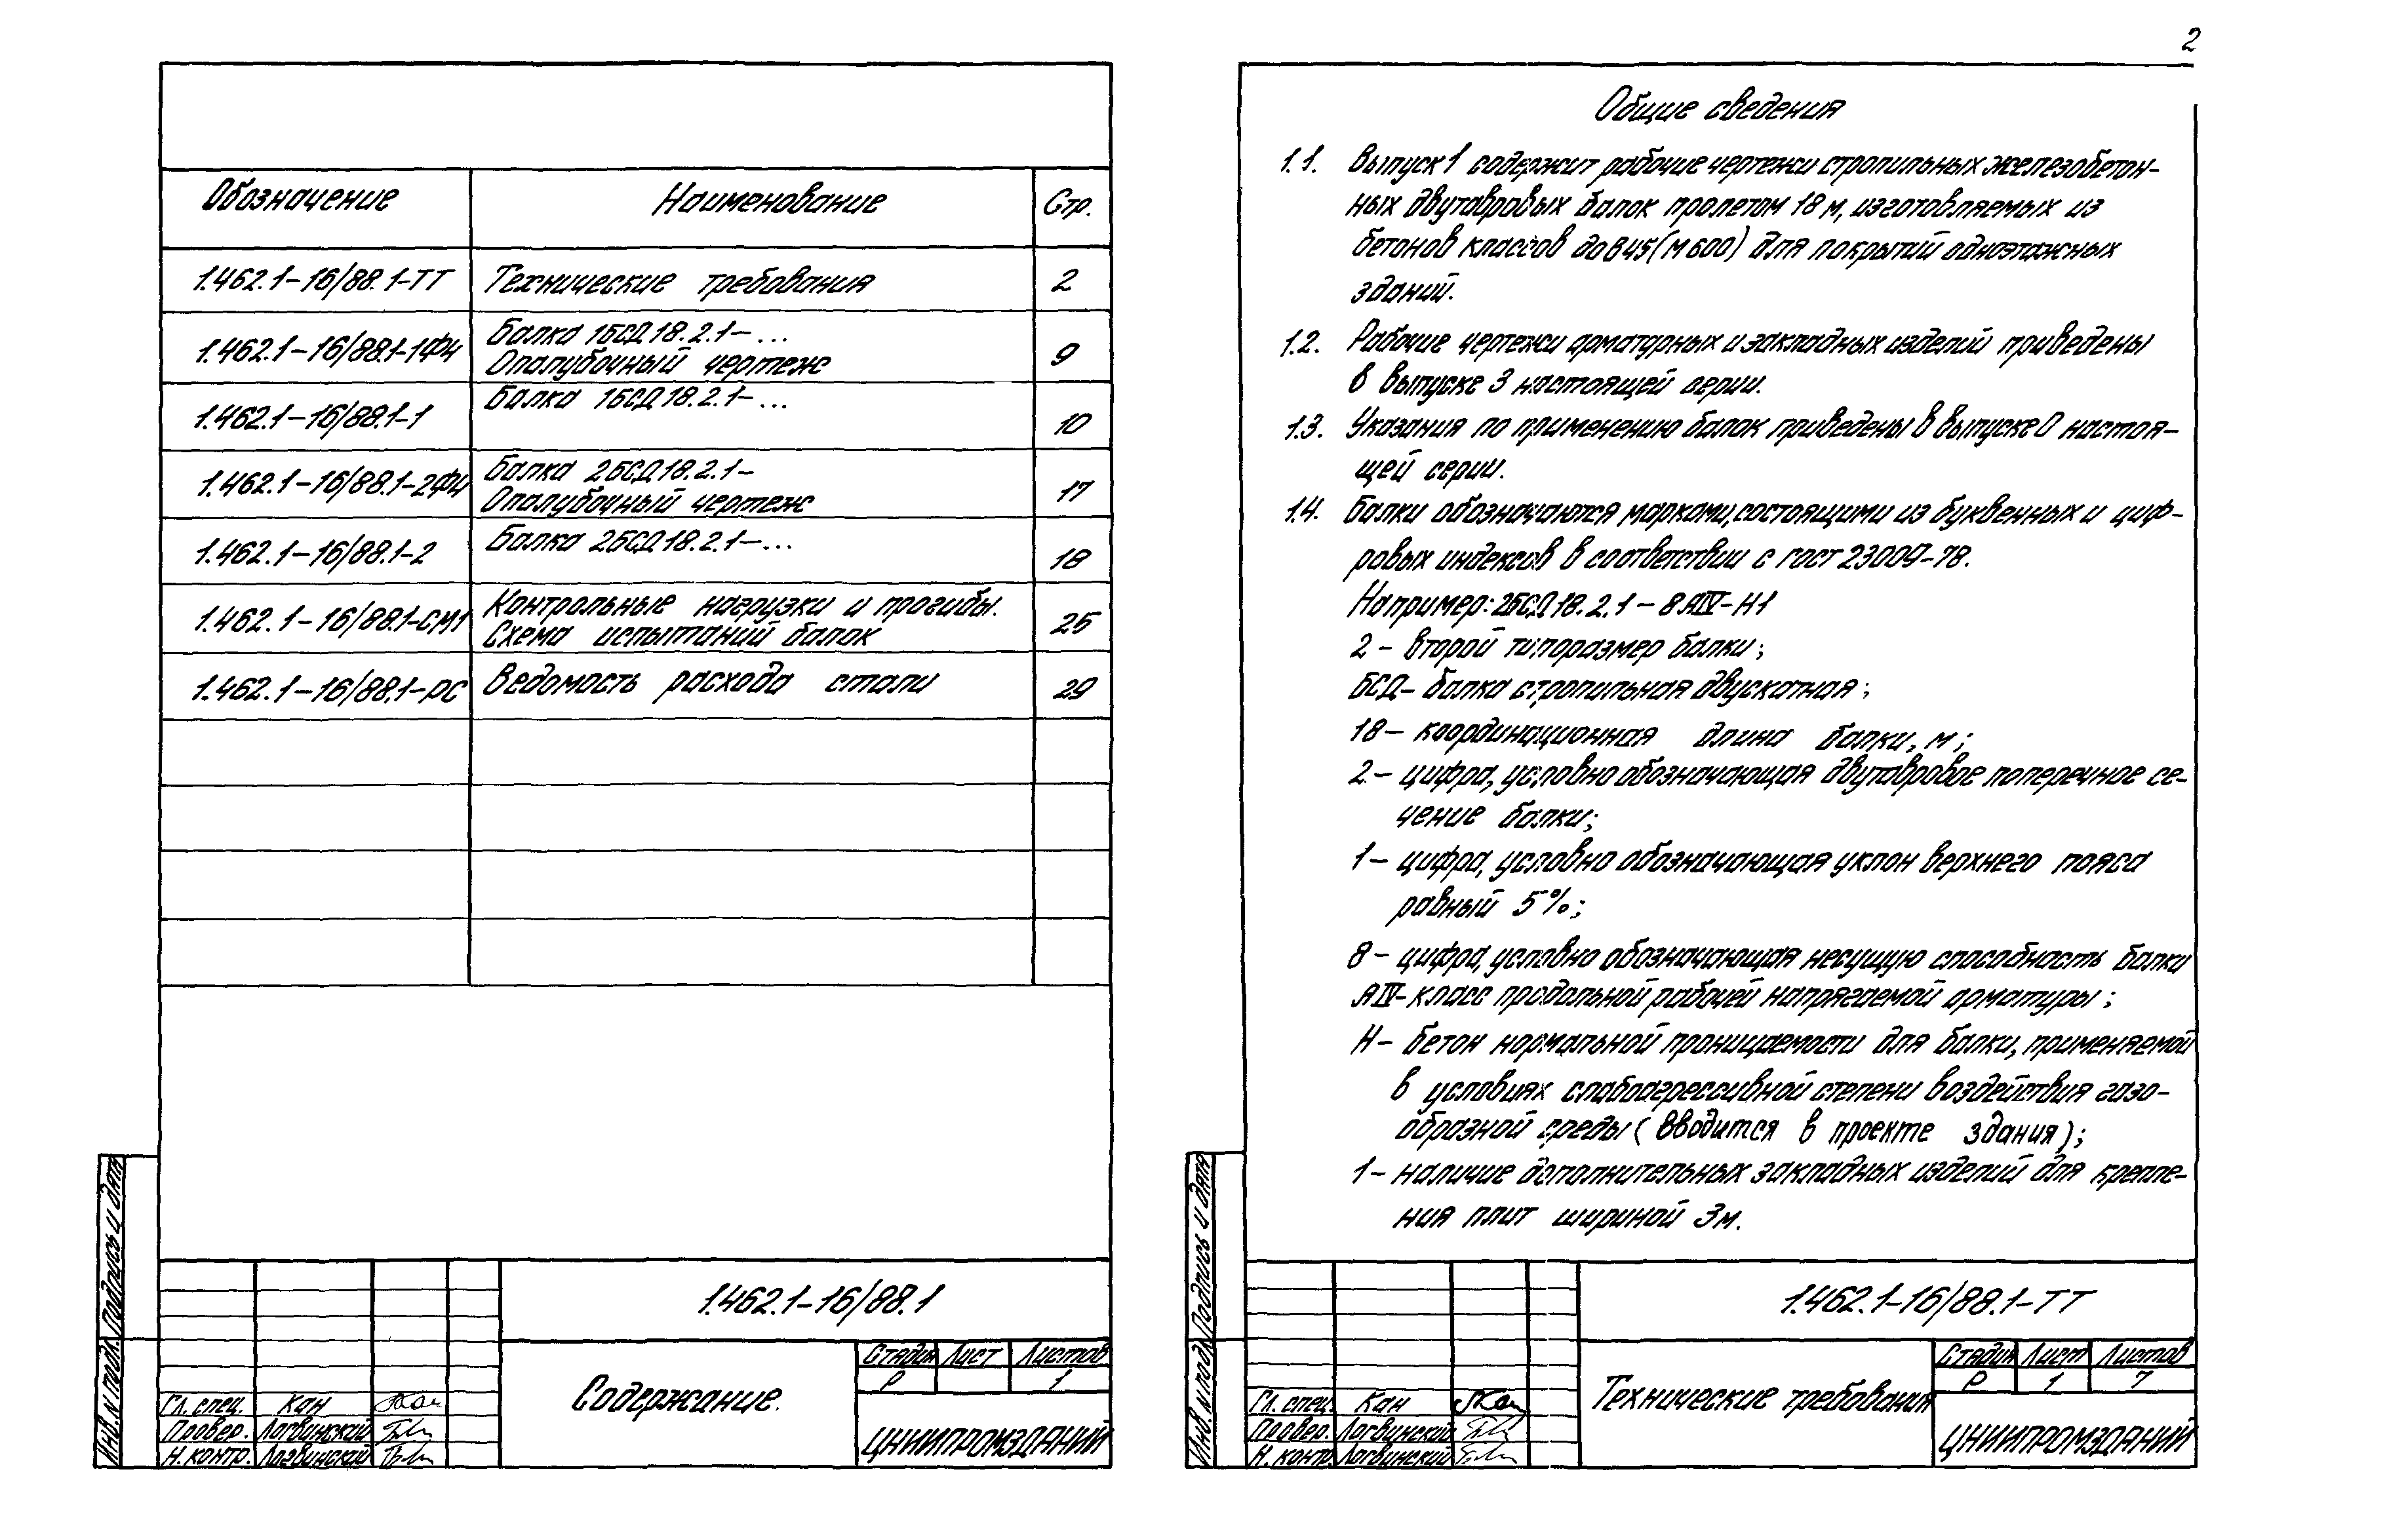 Обозначение Наименование Стр.
1.462.1-16/88.1-ТТ Технические требования 2
1.462.1-16/88.1-1ФЧ Балка 1БСД18.2.1-...
Опалубочный чертеж 9
1.462.1-16/88.1-1 Балка 1БСД18.2.1-... 10
1.462.1-16/88.1-2ФЧ Балка 2БСД18.2.1-
Опалубочный чертеж 17
1.462.1-16/88.1-2 Балка 2БСД18.2.1-... 18
1.462.1-16/88.1-СМ1 Контрольные нагрузки и прогибы.
Схема испытаний балок 25
1.462.1-16/88.1-РС Ведомость расхода стали 29
Подпись и дата
Инв. № подл.
1.462.1-16/88.1
Содержание.
Стадия Лист Листов
Р 1
ЦНИИПРОМЗДАНИЙ
Гл. спец. Кан
Провер. Логвинский
Н. контр. Логвинский
2
Общие сведения
1.1. Выпуск 1 содержит рабочие чертежи стропильных железобетон-
ных двутавровых балок пролетом 18 м, изготовляемых из
бетонов классов до В45 (М600) для покрытий одноэтажных
зданий.
1.2. Рабочие чертежи арматурных и закладных изделий приведены
в выпуске 3 настоящей серии.
1.3. Указания по применению балок приведены в выпуске 0 настоя-
щей серии.
1.4. Балки обозначаются марками, состоящими из буквенных и циф-
ровых индексов в соответствии с ГОСТ 23009-78.
Например: 2БСД18.2.1-8АIV-Н1
2 - второй типоразмер балки;
БСД - балка стропильная двускатная;
18 - координационная длина балки, м;
2 - цифра, условно обозначающая двутавровое поперечное се-
чение балки;
1 - цифра, условно обозначающая уклон верхнего пояса
равный 5%;
8 - цифра, условно обозначающая несущую способность балки
АIV - класс продольной рабочей напрягаемой арматуры;
Н - бетон нормальной проницаемости для балки, применяемой
в условиях слабоагрессивной степени воздействия газо-
образной среды (вводится в проекте здания);
1 - наличие дополнительных закладных изделий для крепле-
ния плит шириной 3м.
Подпись и дата
Инв. № подл.
1.462.1-16/88.1-ТТ
Технические требования
Стадия Лист Листов
Р 1 7
ЦНИИПРОМЗДАНИЙ
Гл. спец. Кан
Провер. Логвинский
Н. контр. Логвинский